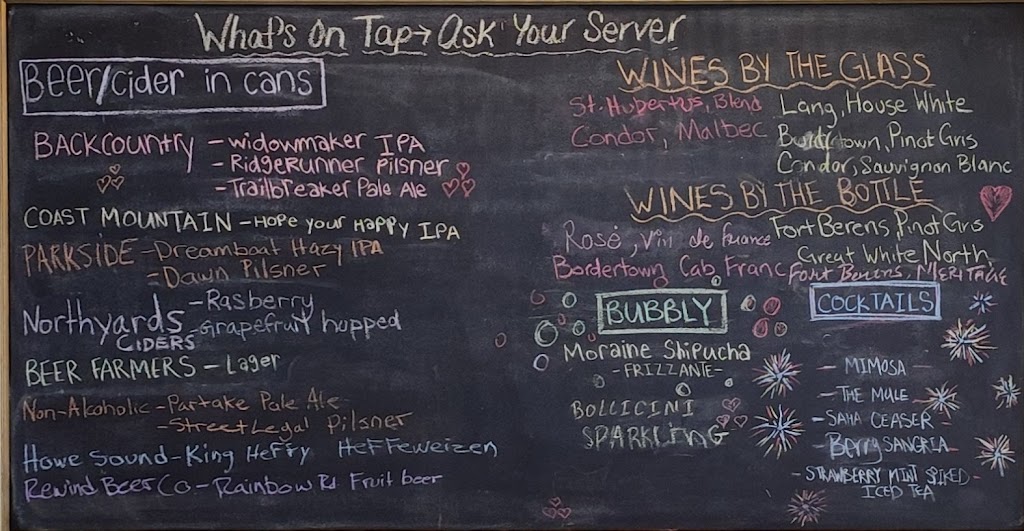 What's On Tap → Ask Your Server
Beer/cider in cans
BACKCOUNTRY - Widowmaker IPA
- RidgeRunner Pilsner
- Trailbreaker Pale Ale
COAST MOUNTAIN - Hope your Happy IPA
PARKSIDE - Dreamboat Hazy IPA
- Dawn Pilsner
Northyards CIDERS - Rasberry
- Grapefruit hopped
BEER FARMERS - Lager
Non-Alcoholic - Partake Pale Ale
- Street Legal Pilsner
Howe Sound - King Heffy HeFFeweizen
Rewind Beer Co. - Rainbow Rd. Fruit beer
WINES BY THE GLASS
St. Hubertus, Blend
Condor, Malbec
Lang, House White
Bordertown, Pinot Gris
Condor, Sauvignon Blanc
WINES BY THE BOTTLE
Rosé, Vin de france
Bordertown Cab Franc
Fort Berens, Pinot Gris
Great White North
Fort Berens, MERITAGE
BUBBLY
Moraine Shipucha
- FRIZZANTE -
BOLLICINI
SPARKLING
COCKTAILS
- MIMOSA -
- THE MULE -
- SAHA CEASER -
- Berry SANGRIA -
- STRAWBERRY MINT SPIKED -
ICED TEA